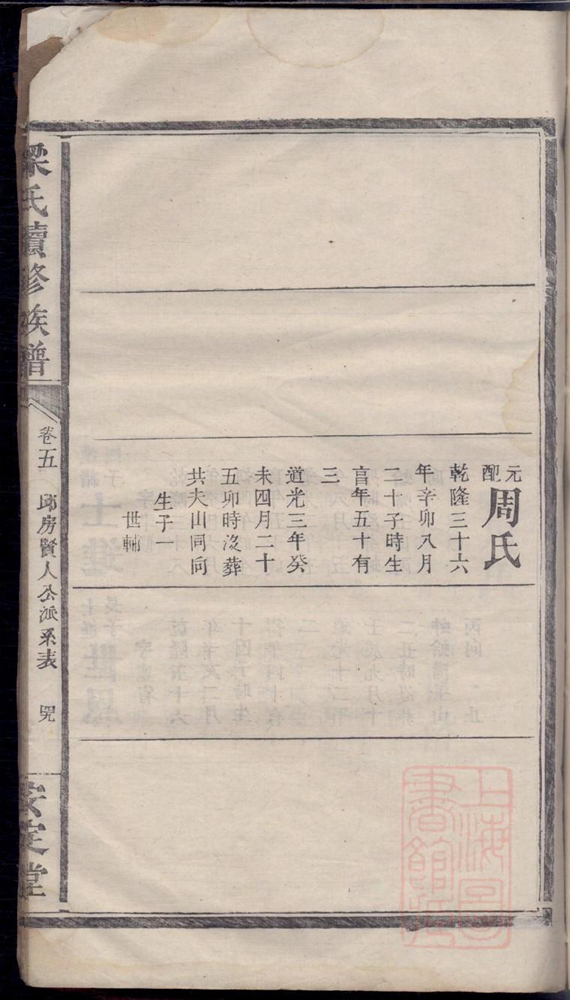 元配周氏
乾隆三十六
年辛卯八月
二十子時生
亯年五十有
三
道光三年癸
未四月二十
五卯時沒葬
共夫山同向
生子一
世輔
梁氏續修族譜
卷五 郎房賢人公派系表
安定堂
上海圖書館藏